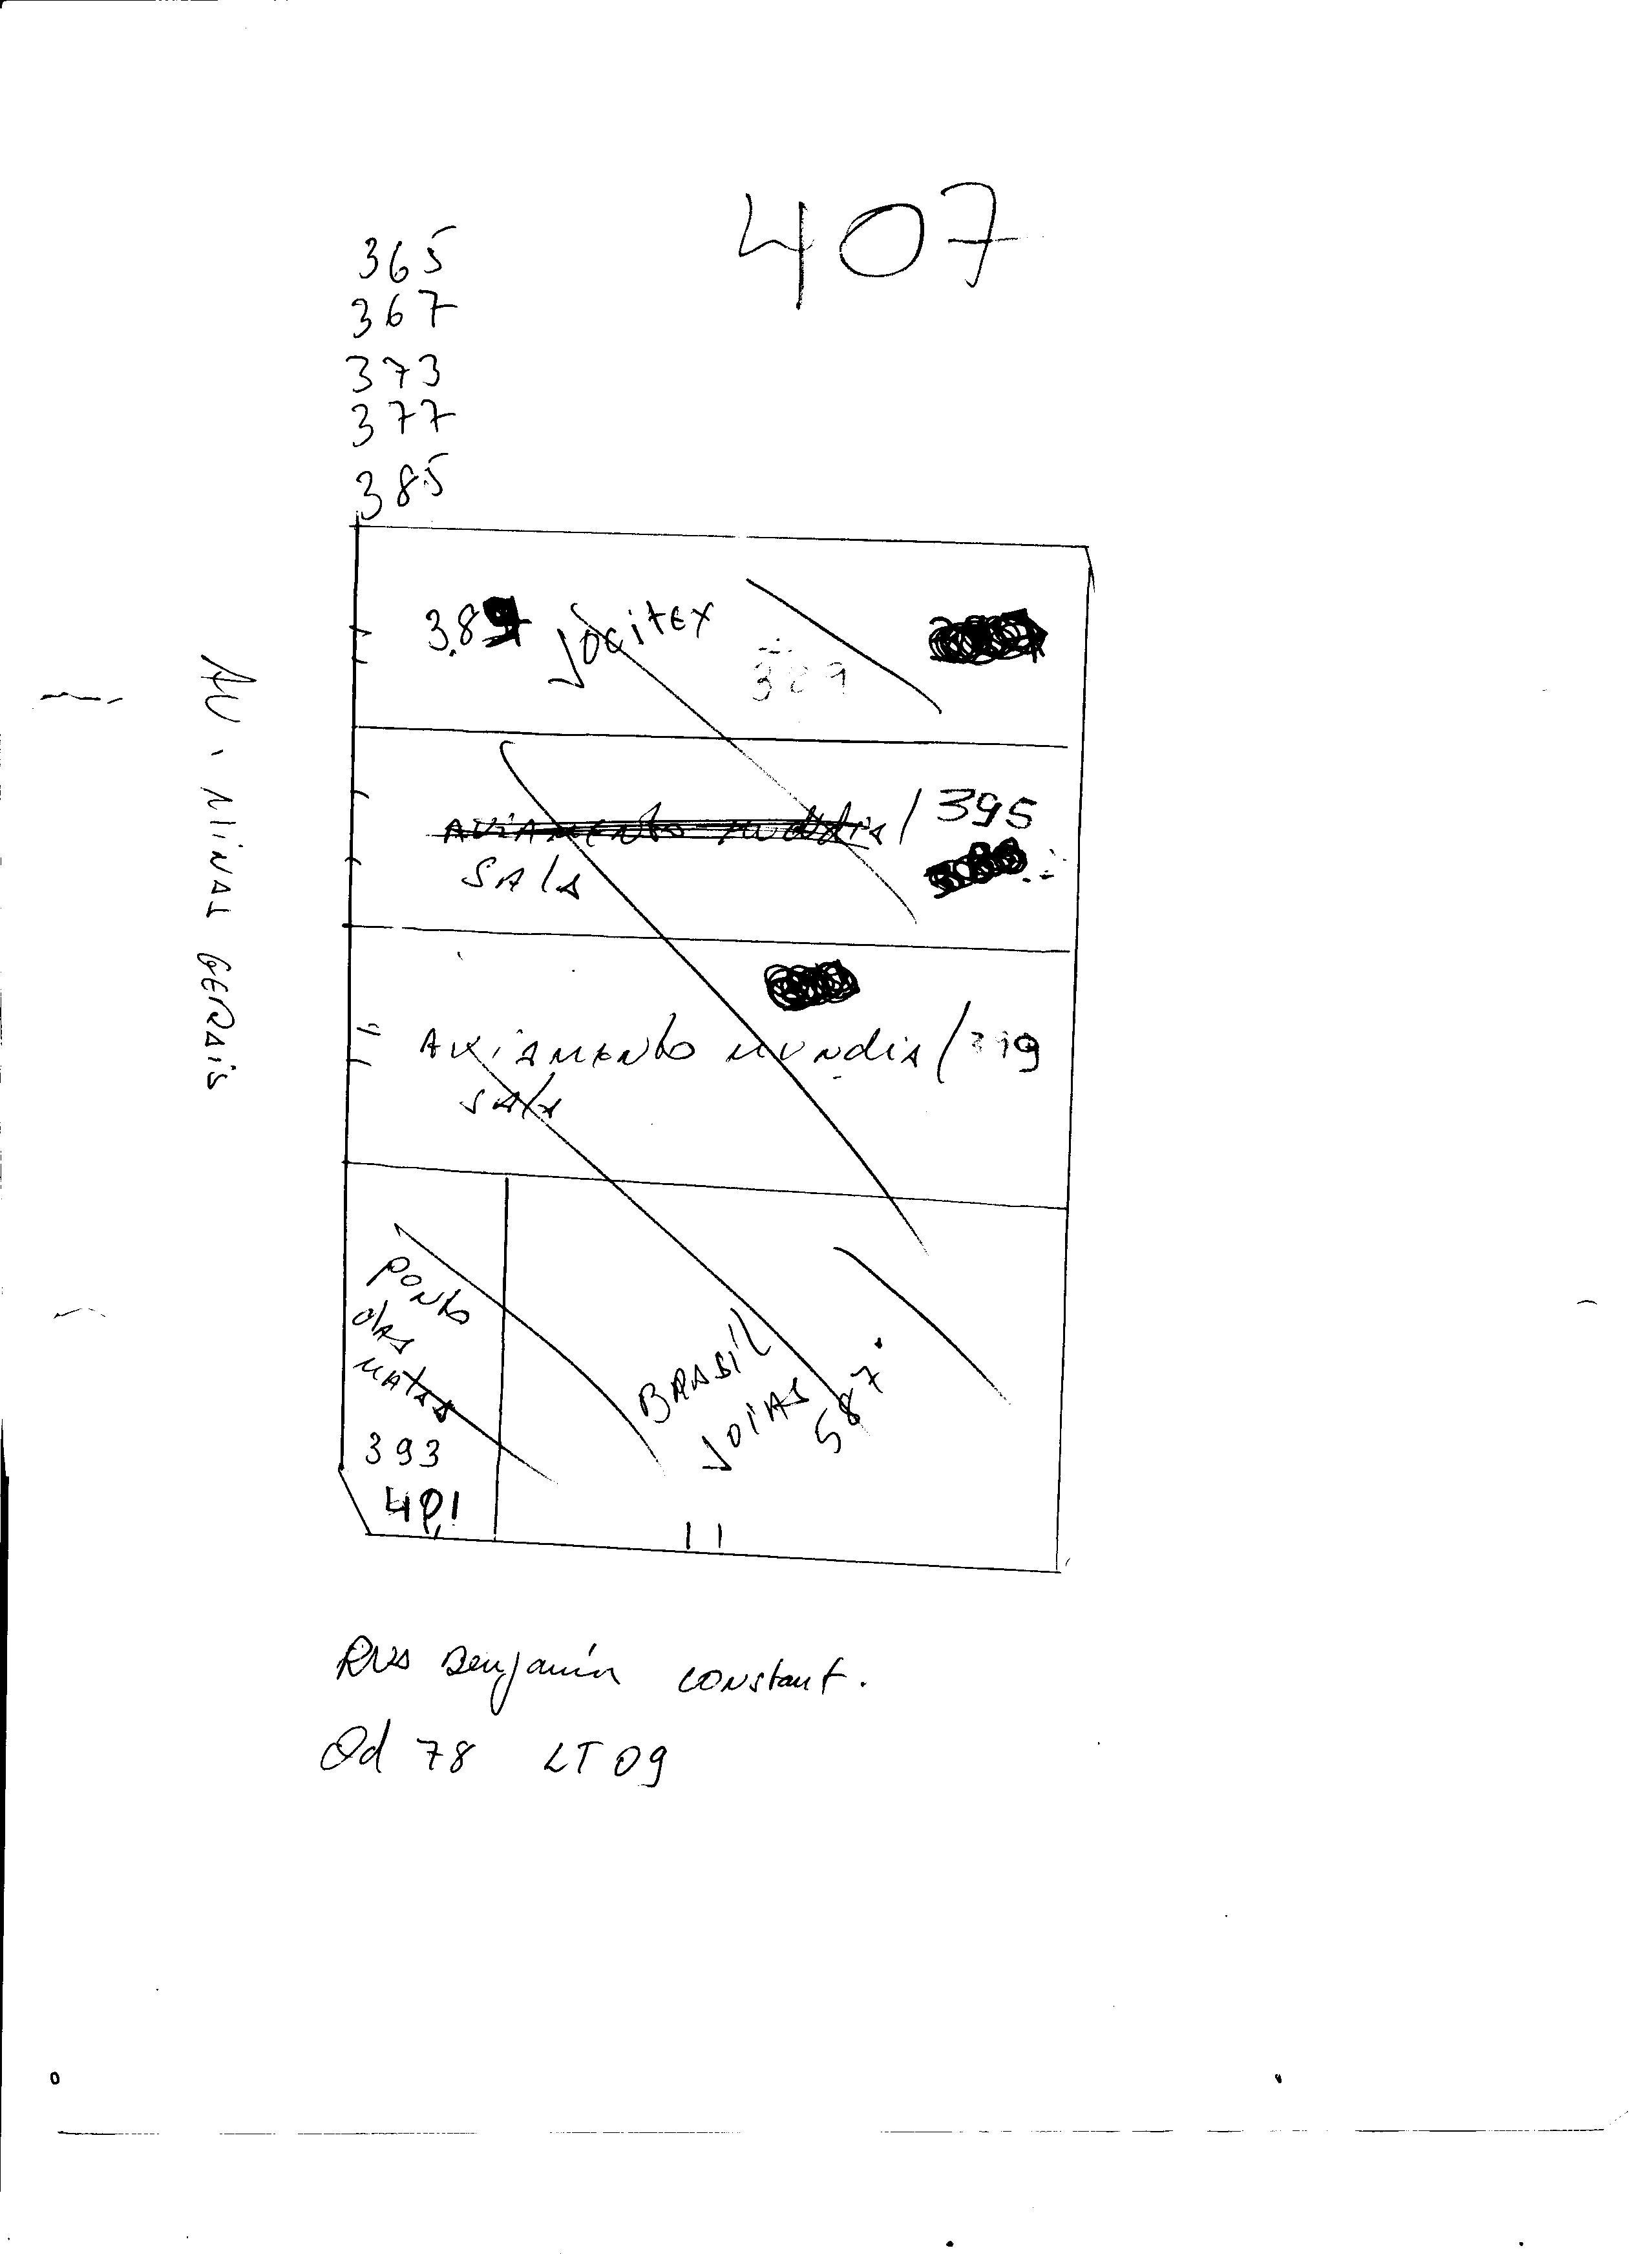 407
365
367
373
377
385
389 Jocitex
389
Aviamento mundia / 395
Sala
Aviamento mundia / 399
Sala
Ponto
das
Matas
393
401
BRASIL
JOIAS
587
AV. MINAS GERAIS
Rua Benjamin constant.
Qd 78 LT 09